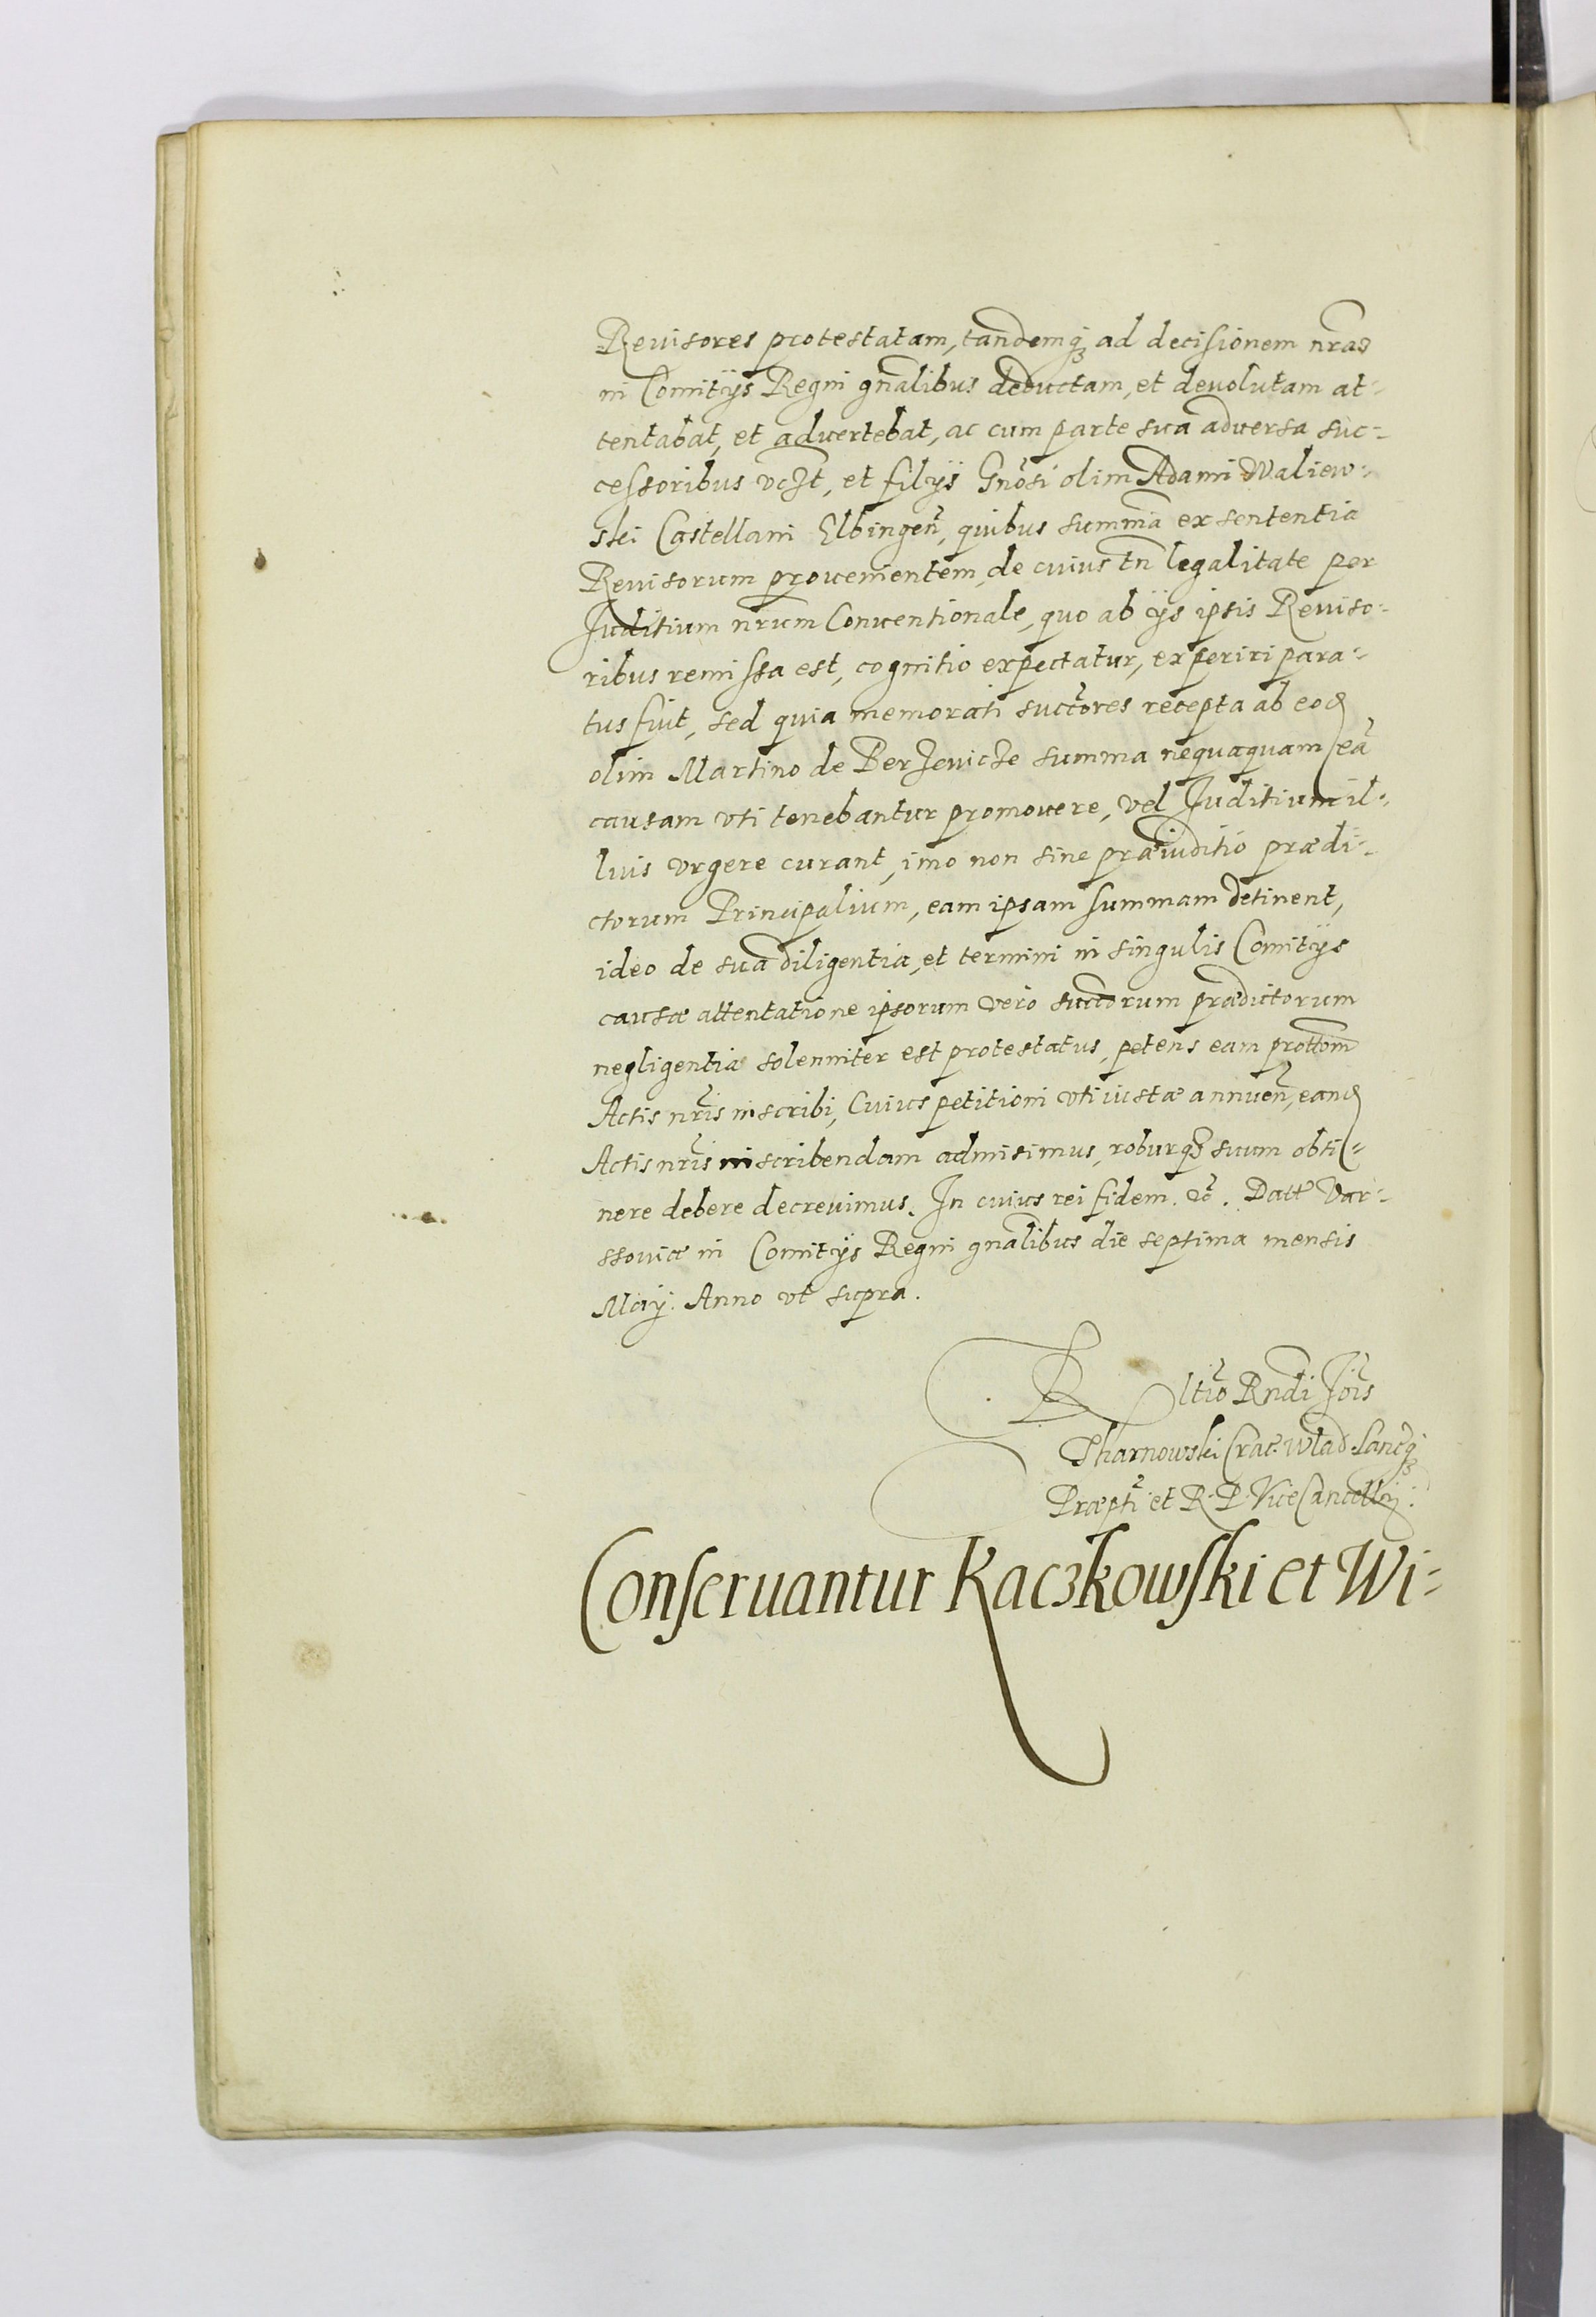 Revisores protestatam, tandemq̨ ad decisionem nr̃ao
in Comitÿs Regni gnãlibus deductam, et devolutam at-
tentabat, et advertebat, ac cum parte sua adversa suc-
cessoribus vczt, et filÿs Gnõsi olim Adami Waliew-
ski Castellani Elbingeñ, quibus summã ex sententia
Revisorum provenientem, de cuius tñ legalitate per
Juditium nr̃um Conventionale, quo ab ÿs ipsis Reviso-
ribus remissa est, cognitio expectatur, experiri para-
tus fuit, sed quia memorati succ̃ores recepta ab eod
olim Martino de Berzevicze summa nequaquam eã
causam vti tenebantur promovere, vel Juditium il-
lius vrgere curant, imo non sine præiuditio prædi-
ctorum Principalium, eam ipsam summam detinent,
ideo de sua diligentia, et termini in singulis Comitÿs
causæ attentatione ipsorum vero succorum prædictorum
negligentia solenniter est protestatus, petens eam prottõm
Actis nr̃is inscribi, Cuius petitioni vti iustæ annueñ, eand
Actis nr̃is inscribendam admisimus, roburq̨ suum obti-
nere debere decrevimus. In cuius rei fidem. &c̃. Datt Var-
ssoviæ in Comitÿs Regni gnãlibus die septima mensis
Maÿ. Anno vt supra.
R ltĩo Rñdi Jõis
Tharnowski Crac. Wlad. Lancq̨
Præptĩ et R. P. ViceCancellrÿ.
Conseruantur Kaczkowski et Wi-